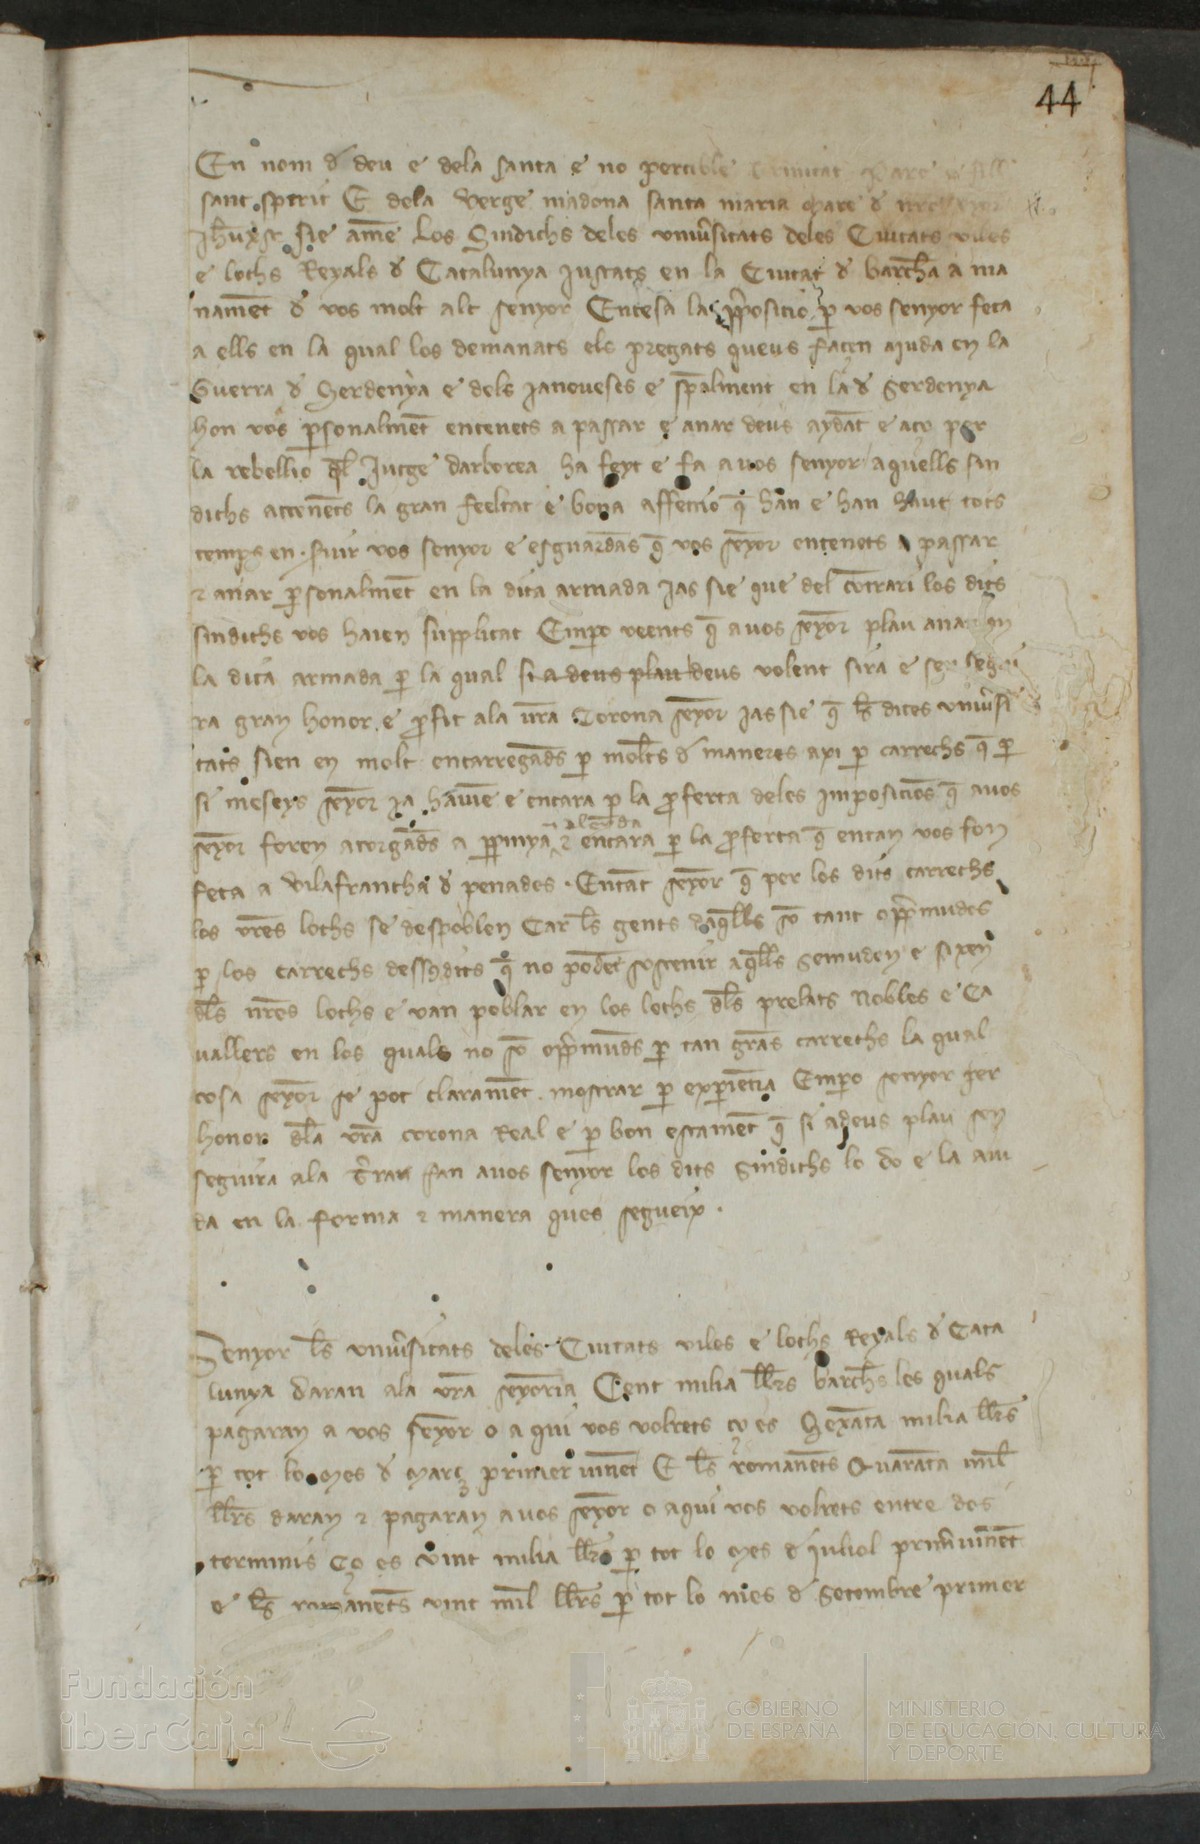 44
En nom d deu e dela santa e no partible Trinitat Pare e fill
sant sperit E dela verge madona santa maria mare d nre senyor
Jhu xst sie ame Los Sindichs deles uniũsitats deles Ciutats viles
e lochs Reyals d Catalunya justats en la Ciutat d barchña a ma
namẽt d vos molt alt senyor Entesa la pposicio p vos senyor feta
a ells en la qual los demanats els pregats queus facen ajuda en la
Guerra d Serdenya e dels janoveses e spalment en la d Serdenya
hon vos psonalmẽt entenets a passar e anar deus aydãt e aço per
la rebellio dl Jutge darborea ha feyt e fa avos senyor aquells sin
dichs attenẽts la gran feeltat e bona affeccio q han e han haut tots
temps en suir vos senyor e esguardãs q vos seyor entenets a passar
e anar psonalmẽt en la dita armada jas sie que del cõtrari los dits
sindichs vos haien supplicat Empo veents q avos seyor plau anar en
la dita armada p la qual si a deus plau deus volent sira e sen segui
ra gran honor e profit ala vra Corona seyor jassie q ls dites uniũsi
tats sien en molt encarregads p molts d maneres axi p carrechs q p
si meseys seyor ja hauie e encara p la proferta deles imposicios q avos
seyor foren atorgads a ppinya e encara p la proferta q entan vos fon
feta a Vilafrancha d penades Entãt seyor q per los dits carrechs
los vres lochs se despoblen Car ls gents daqlls so tant oppmudes
p los carrechs dessusdits q no podẽt sostenir aqlls semuden e sixen
dls nres lochs e van poblar en los lochs dls prelats Nobles e Ca
vallers en los quals no so oppmuds p tan grãs carrechs la qual
cosa seyor se pot claramẽt mostrar p expiẽcia Empo senyor per
honor dla vra corona Real e p bon estamẽt q si adeus plau sen
seguira ala trra fan avos senyor los dits Sindichs lo do e la aiu
da en la forma e manera ques segueix
Senyor ls uniũsitats deles Ciutats viles e lochs Reyals d Cata
lunya daran ala vra seyoria Cent milia llrs barchs les quals
pagaran a vos seyor o a qui vos volrets ço es Sexãta milia llrs
p tot lo mes d març primer vinẽt E ls romanẽts Quarãta mil
llrs daran e pagaran avos seyor o aqui vos volrets entre dos
terminis Ço es vint milia llrs p tot lo mes d juliol primer vinẽt
e ls romanẽts vint mil llrs p tot lo mes d Setembre primer
Fundación
iberCaja
GOBIERNO
DE ESPAÑA
MINISTERIO
DE EDUCACIÓN, CULTURA
Y DEPORTE